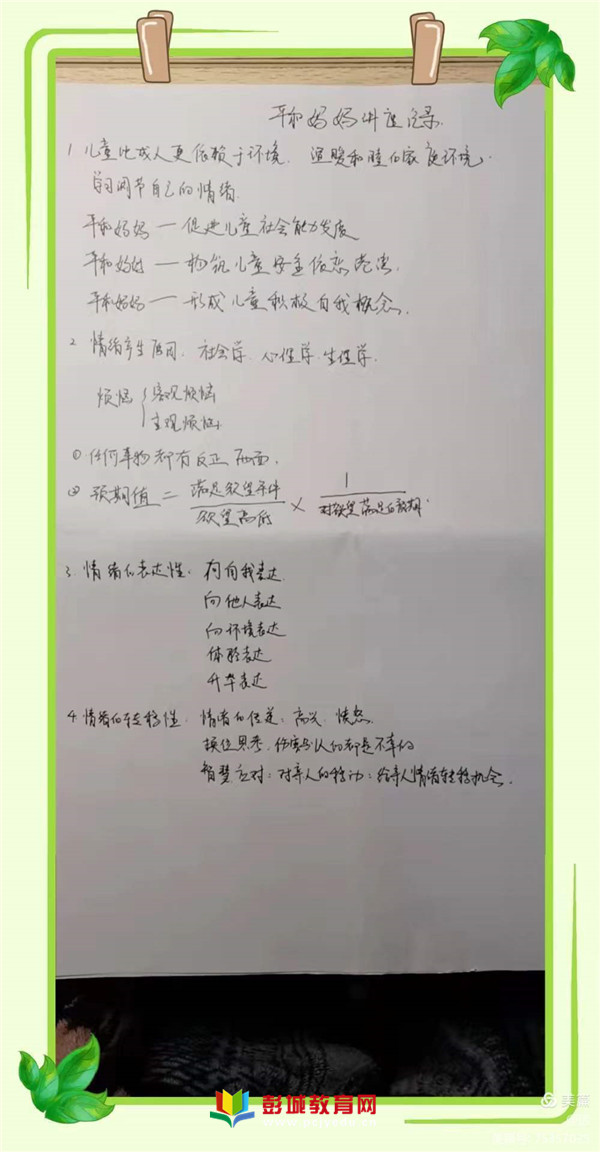 平和妈妈讲座记录.
1 儿童比成人更依赖于环境. 温暖和睦的家庭环境.
学习调节自己的情绪.
平和妈妈 — 促进儿童社会能力发展
平和妈妈 — 构筑儿童安全依恋
平和妈妈 — 形成儿童积极自我概念.
2 情绪产生原因. 社会学. 心理学. 生理学.
烦恼 { 客观烦恼
主观烦恼
① 任何事物都有反正两面.
② 预期值 = 满足欲望条件 / 欲望高低 × 1 / 对欲望满足的
3. 情绪的表达性: 向自我表达.
向他人表达
向环境表达
体验表达
升华表达
4. 情绪的转移性: 情绪的传递: 高兴. 愤怒.
换位思考. 伤害别人的都是不幸的
智慧应对: 对亲人的 : 给亲人情绪转移机会.
彭城教育网
美篇